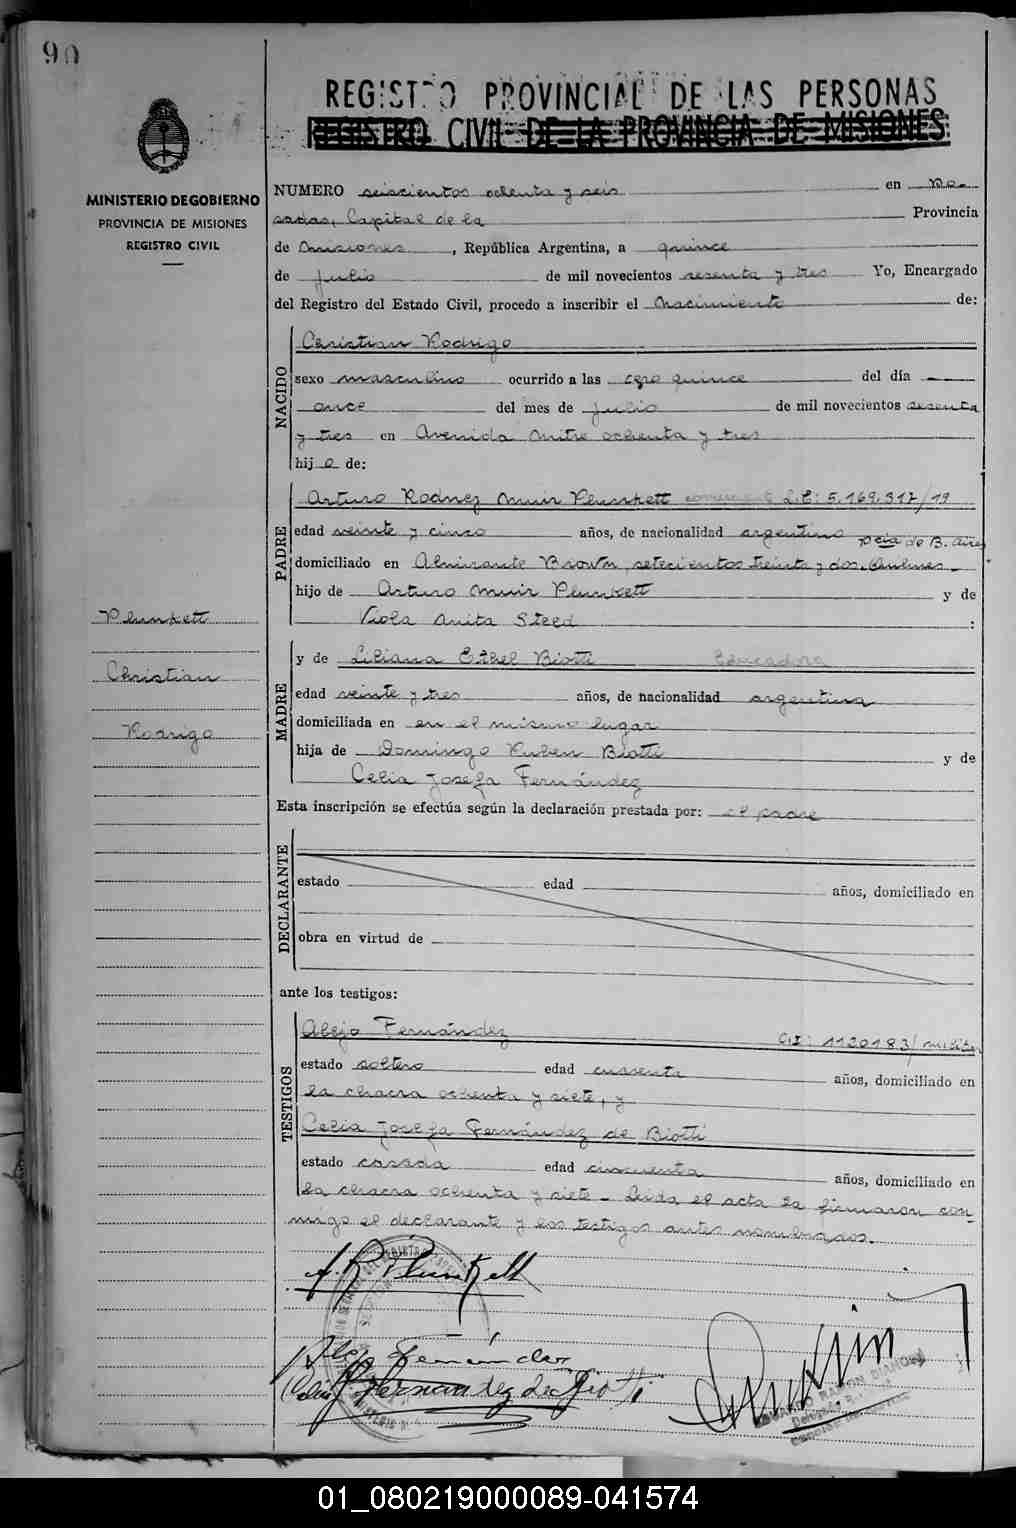 90
REGISTRO PROVINCIAL DE LAS PERSONAS
REGISTRO CIVIL DE LA PROVINCIA DE MISIONES
MINISTERIO DE GOBIERNO
PROVINCIA DE MISIONES
REGISTRO CIVIL
NUMERO seiscientos ochenta y seis en Po-
sadas, Capital de la Provincia
de Misiones, República Argentina, a quince
de Julio de mil novecientos sesenta y tres Yo, Encargado
del Registro del Estado Civil, procedo a inscribir el nacimiento de:
NACIDO
Christian Rodrigo
sexo masculino ocurrido a las cero quince del día
once del mes de julio de mil novecientos sesenta
y tres en Avenida Mitre ochenta y tres
hijo de:
PADRE
Arturo Rodney Muir Plunkett comerciante L.E: 5.169.317/19
edad veinte y cinco años, de nacionalidad argentino pcia de B. Aires
domiciliado en Almirante Brown, setecientos treinta y dos. Quilmes.
hijo de Arturo Muir Plunkett y de
Viola Anita Steed :
Plunkett
Christian
Rodrigo
MADRE
y de Liliana Ethel Biotti Educadora
edad veinte y tres años, de nacionalidad argentina
domiciliada en en el mismo lugar
hija de Domingo Ruben Biotti y de
Celia Josefa Fernández
Esta inscripción se efectúa según la declaración prestada por: el padre
DECLARANTE
estado edad años, domiciliado en
obra en virtud de
ante los testigos:
TESTIGOS
Alejo Fernández C.I: 1120183/militar
estado soltero edad cuarenta años, domiciliado en
la chacra ochenta y siete, y
Celia Josefa Fernández de Biotti
estado casada edad cincuenta años, domiciliado en
la chacra ochenta y siete - Leida el acta la firmaron con-
migo el declarante y los testigos antes nombrados.
A. R. Plunkett
Alejo Fernandez
Celia J Fernandez de Biotti
RAMON
01_080219000089-041574